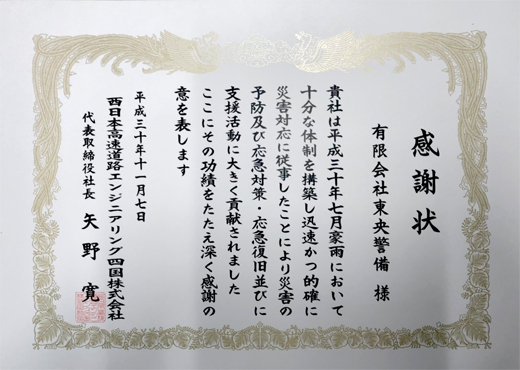 感謝状
有限会社東央警備 様
貴社は平成三十年七月豪雨において
十分な体制を構築し迅速かつ的確に
災害対応に従事したことにより災害の
予防及び応急対策・応急復旧並びに
支援活動に大きく貢献されました
ここにその功績をたたえ深く感謝の
意を表します
平成三十年十一月七日
西日本高速道路エンジニアリング四国株式会社
代表取締役社長 矢野 寛